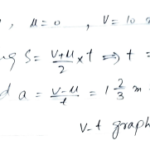 , u=0 , v=10
S= \frac{v+u}{2}×t ⇒ t =
a = \frac{v-u}{t} = 1\frac{2}{3} m
v-t graph